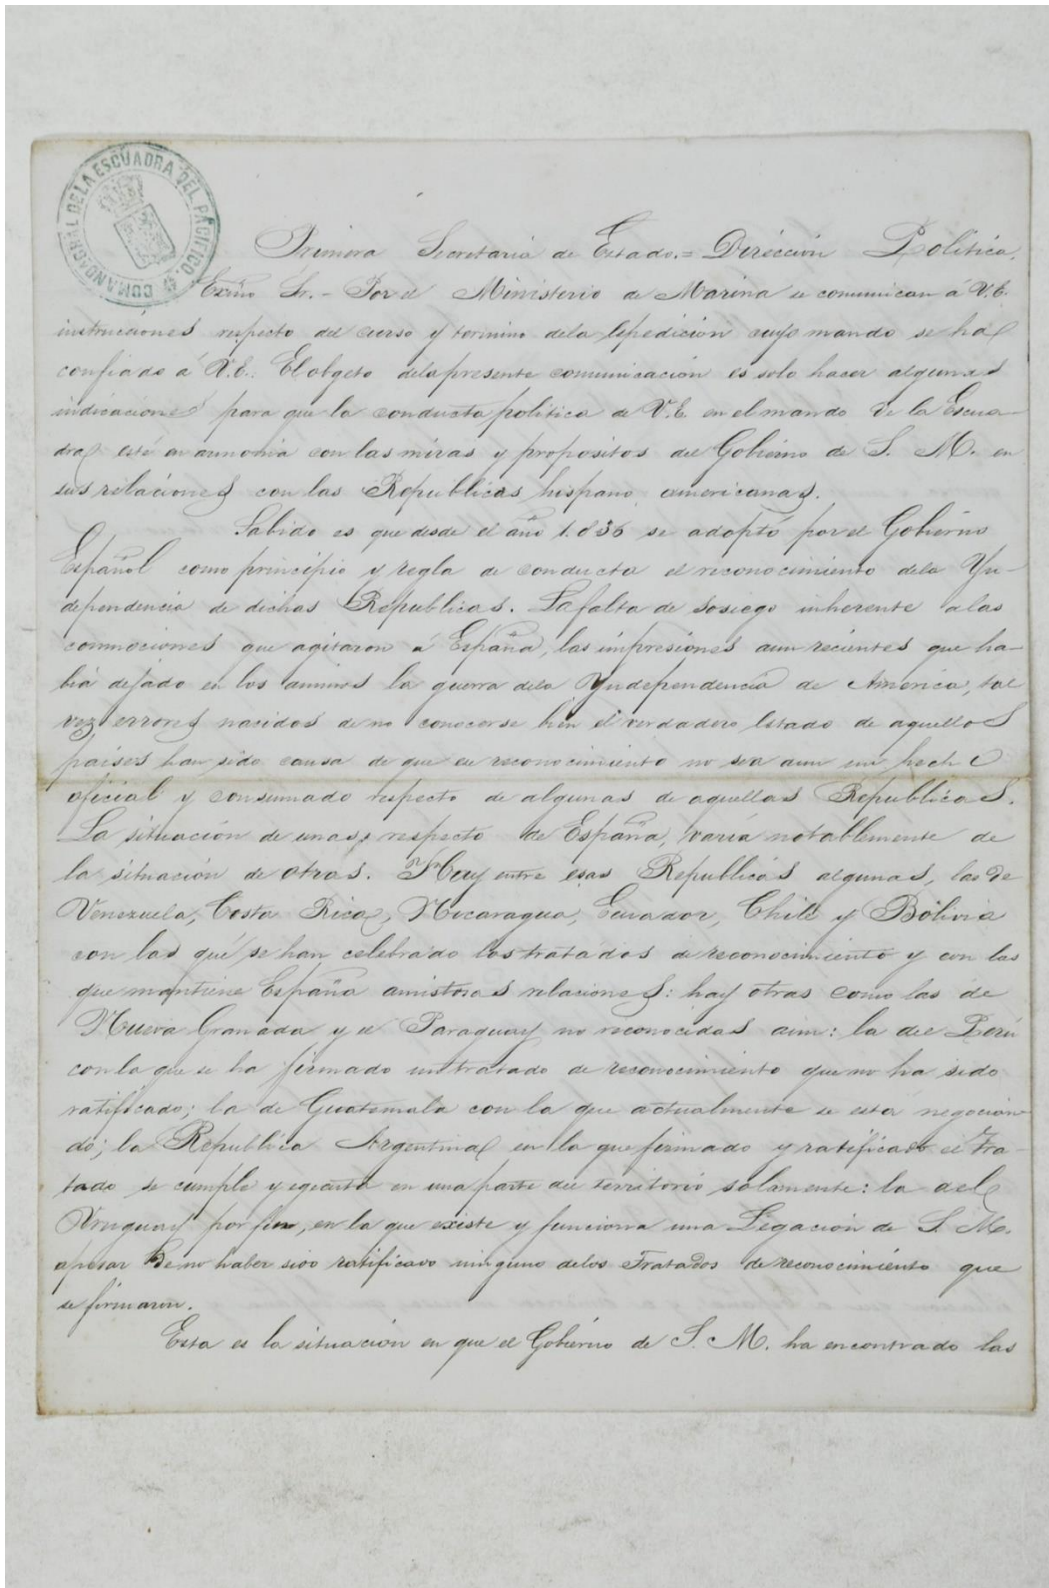 COMANDA GRAL DE LA ESCUADRA DEL PACIFICO.
Primera Secretaria de Estado.= Dirección Politica.
Exmo Sr.- Por el Ministerio de Marina se comunican á V.E.
instrucciones respecto del curso y termino dela Espedición cuyo mando se ha
confiado á V.E. El obgeto dela presente comunicación es solo hacer algunas
indicaciones para que la conducta politica de V.E. en el mando de la Escua-
dra esté en armonia con las miras y propositos del Gobierno de S. M. en
sus relaciones con las Republicas hispano americanas.
Sabido es que desde el año 1.836 se adoptó por el Gobierno
Español como principio y regla de conducta el reconocimiento dela Yn-
dependencia de dichas Republicas. La falta de sosiego inherente alas
conmociones que agitaron á España, las impresiones aun recientes que ha-
bia dejado en los animos la guerra dela Yndependencia de America, tal
vez errores nacidos de no conocerse bien el verdadero Estado de aquellos
paises han sido causa de que su reconocimiento no sea aun un hecho
oficial y consumado respecto de algunas de aquellas Republicas.
La situación de unas, respecto de España, varia notablemente de
la situación de otras. Hay entre esas Republicas algunas, las de
Venezuela, Costa Rica, Nicaragua, Ecuador, Chile y Bolivia
con las que se han celebrado los tratados de reconocimiento y con las
que mantiene España amistosas relaciones: hay otras como las de
Nueva Granada y el Paraguay no reconocidas aun: la del Perú
con la que se ha firmado un tratado de reconocimiento que no ha sido
ratificado; la de Guatemala con la que actualmente se está negocian
do; la Republica Argentina en la que firmado y ratificado el Tra-
tado se cumple y egecuta en una parte del territorio solamente: la del
Uruguay por fin, en la que existe y funciona una Legación de S. M.
apesar de no haber sido ratificado ninguno delos Tratados de reconocimiento que
se firmaron.
Esta es la situación en que el Gobierno de S. M. ha encontrado las